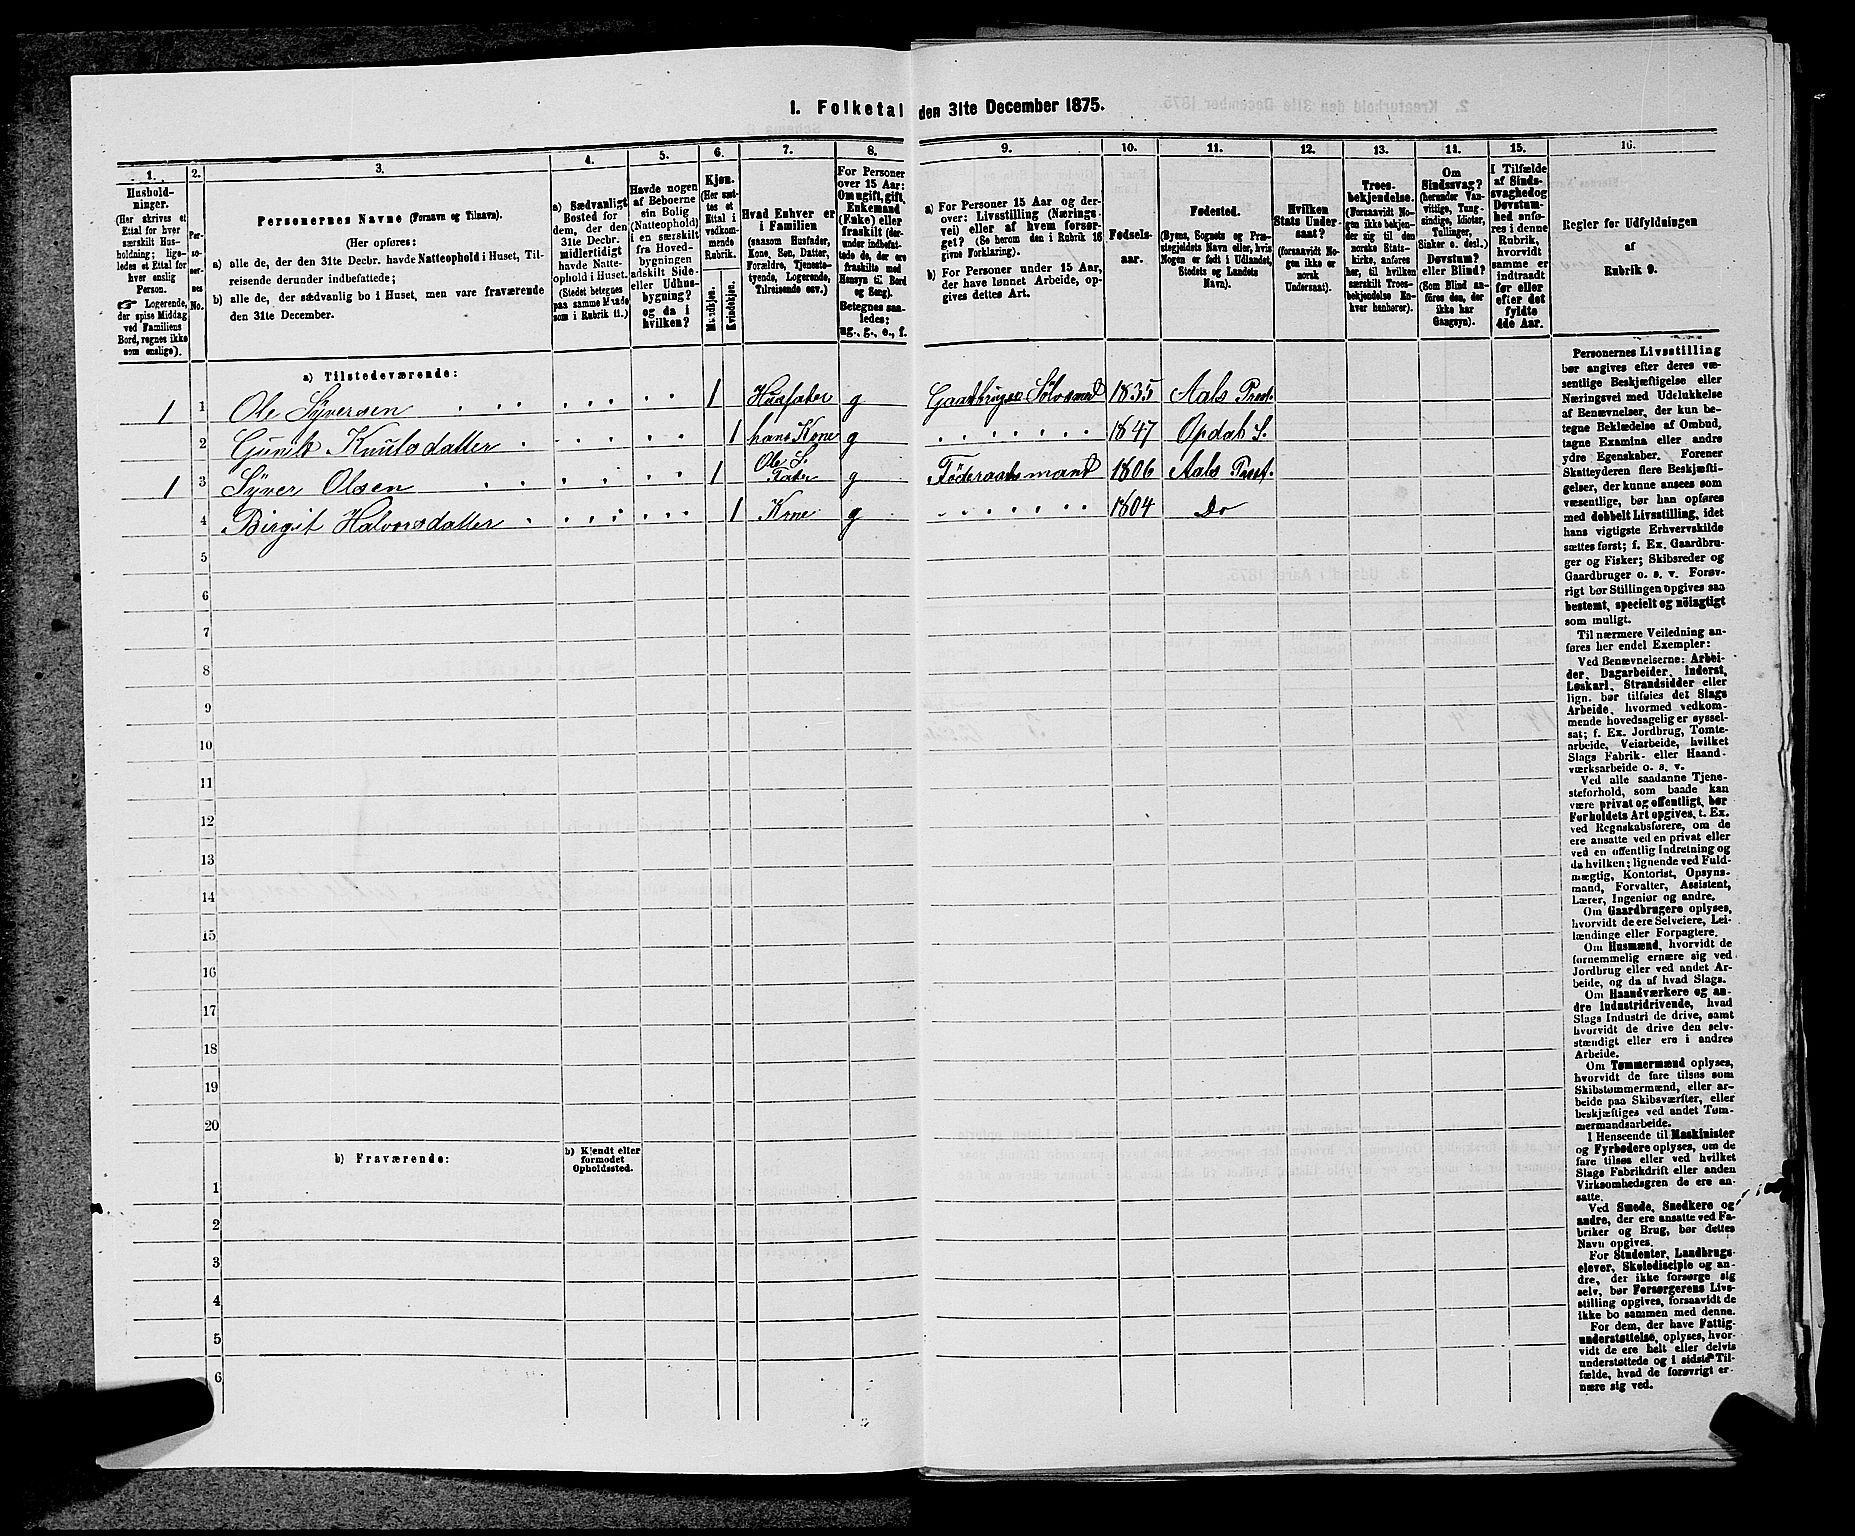 1. Folketal den 31te December 1875.
1. 2. 3. 4. 5. 6. 7. 8. 9. 10. 11. 12. 13. 14. 15. 16.
Hushold-
ninger.
(Her skrives et
Ettal for hver
særskilt Hus-
holdning; lige-
ledes et Ettal for
hver enslig
Person.
☞ Logerende,
der spise Middag
ved Familiens
Bord, regnes ikke
som enslige).
Per-
so-
ner-
nes
No.
Personernes Navne (Fornavn og Tilnavn).
(Her opføres:
a) alle de, der den 31te Decbr. havde Natteophold i Huset, Til-
reisende derunder indbefattede;
b) alle de, der sædvanlig bo i Huset, men vare fraværende
den 31te December.
a) Sædvanligt
Bosted for
dem, der den
31te Decbr.
midlertidigt
havde Natte-
ophold i Huset.
(Stedet betegnes
paa samme Maade
som i Rubrik 11.)
Havde nogen
af Beboerne
sin Bolig
(Natteophold)
i en særskilt
fra Hoved-
bygningen
adskilt Side-
eller Udhus-
bygning?
og da i
hvilken?
Kjøn.
(Her sæt-
tes et
Ettal i
vedkom-
mende
Rubrik.
Mandkjøn.
Kvindekjøn.
Hvad Enhver er
i Familien
(saasom Husfader,
Kone, Søn, Datter,
Forældre, Tjeneste-
tyende, Logerende,
Tilreisende osv.)
For Personer
over 15 Aar:
Om ugift, gift,
Enkemand
(Enke) eller
fraskilt (der-
under indbefat-
tede de, der ere
fraskilte med
Hensyn til Bord
og Seng).
Betegnes saa-
ledes:
ug., g., e., f.
a) For Personer 15 Aar og der-
over: Livsstilling (Nærings-
vei) eller af hvem forsør-
get? (Se herom den i Rubrik 16
givne Forklaring).
b) For Personer under 15 Aar,
der have lønnet Arbeide, op-
gives dettes Art.
Fødsels-
aar.
Fødested.
(Byens, Sognets og Præ-
stegjeldets Navn eller, hvis
Nogen er født i Udlandet,
Stedets og Landets
Navn).
Hvilken
Stats Under-
saat?
(forsaavidt No-
gen ikke er
norsk
Undersaat).
Troes-
bekjendelse.
(Forsaavidt No-
gen ikke bekjen-
der sig til den
norske Stats-
kirke, anføres
her, til hvilken
særskilt Troes-
bekjendelse En-
hver hører).
Om
Sindssvag?
(herunder Van-
vittige, Tung-
sindige, Idioter,
Tullinger,
Sinker o. desl.)
Døvstum?
eller Blind?
(Som Blind an-
føres den, der
ikke har
Gangsyn).
I Tilfælde
af Sinds-
svaghed og
Døvstum-
hed anfø-
res i denne
Rubrik,
hvorvidt
samme er
indtraadt
før eller
efter det
fyldte
4de Aar.
Regler for Udfyldningen
af
Rubrik 9.
a) Tilstedeværende:
1 1 Ole Syversen 1 Husfader g Gaardbruger Sølvsmed 1835 Aals Prest.
2 Gunild Knutsdatter 1 hans Kone g 1847 Opdal S.
1 3 Syver Olsen 1 Ole S. Fader g Föderaadsmand 1806 Aals Prest.
4 Birgit Halvorsdatter 1 Kone g 1804 Do
5
6
7
8
9
10
11
12
13
14
15
16
17
18
19
20
b) Fraværende:
b) Kjendt eller
formodet
Opholdssted.
1
2
3
4
5
6
Personernes Livsstilling
bør angives efter deres væ-
sentlige Beskjæftigelse eller
Næringsvei med Udelukkelse
af Benævnelser, der kun be-
tegne Beklædelse af Ombud,
tagne Examina eller andre
ydre Egenskaber. Forener
Skatteyderen flere Beskjæfti-
gelser, der kunne ansees som
væsentlige, bør han opføres
med dobbelt Livsstilling, idet
hans vigtigste Erhvervskilde
sættes først; f. Ex. Gaardbru-
ger og Fisker; Skibsreder og
Gaardbruger o. s. v. Forøv-
rigt bør Stillingen opgives saa
bestemt, specielt og nøiagtigt
som muligt.
Til nærmere Veiledning an-
føres her endel Exempler:
Ved Benævnelserne: Arbei-
der, Dagarbeider, Inderst,
Løskarl, Strandsidder eller
lign. bør tilføies det Slags
Arbeide, hvormed vedkom-
mende hovedsagelig er syssel-
sat; f. Ex. Jordbrug, Tomte-
arbeide, Veiarbeide, hvilket
Slags Fabrik- eller Haand-
værksarbeide o. s. v.
Ved alle saadanne Tjene-
steforhold, som baade kan
være privat og offentligt, bør
Forholdets Art opgives, t. Ex.
ved Regnskabsførere, om de
ere ansatte ved en privat eller
ved en offentlig Indretning og
da hvilken; lignende ved Fuld-
mægtig, Kontorist, Opsyns-
mand, Forvalter, Assistent,
Lærer, Ingeniør og andre.
Om Gaardbrugere oplyses,
hvorvidt de ere Selveiere, Lei-
lændinge eller Forpagtere.
Om Husmænd, hvorvidt de
fornemmelig ernære sig ved
Jordbrug eller ved andet Ar-
beide, og da af hvad Slags.
Om Haandværkere og an-
dre industridrivende, hvad
Slags Industri de drive, samt
hvorvidt de drive den selv-
stændigt eller ere i andres
Arbeide.
Om Tømmermænd oplyses,
hvorvidt de fare tilsøs som
Skibstømmermænd, eller ar-
beide paa Skibsværfter, eller
beskjæftiges ved andet Tøm-
mermandsarbeide.
I Henseende til Maskinister
og Fyrbødere oplyses, om de
fare tilsøs eller ved hvilket
Slags Fabrikdrift eller anden
Virksomhedsgren de ere an-
satte.
Ved Smede, Snedkere og
andre, der ere ansatte ved Fa-
briker og Brug, bør dettes
Navn opgives.
For Studenter, Landbrugs-
elever, Skoledisciple og an-
dre, der ikke forsørge sig
selv, bør Forsørgerens Livs-
stilling opgives, forsaavidt de
ikke bo sammen med denne.
For dem, der have Fattig-
understøttelse, oplyses, hvor-
vidt de ere helt eller delvis
understøttede og i sidste Til-
fælde, hvad de forøvrigt er-
nære sig ved.